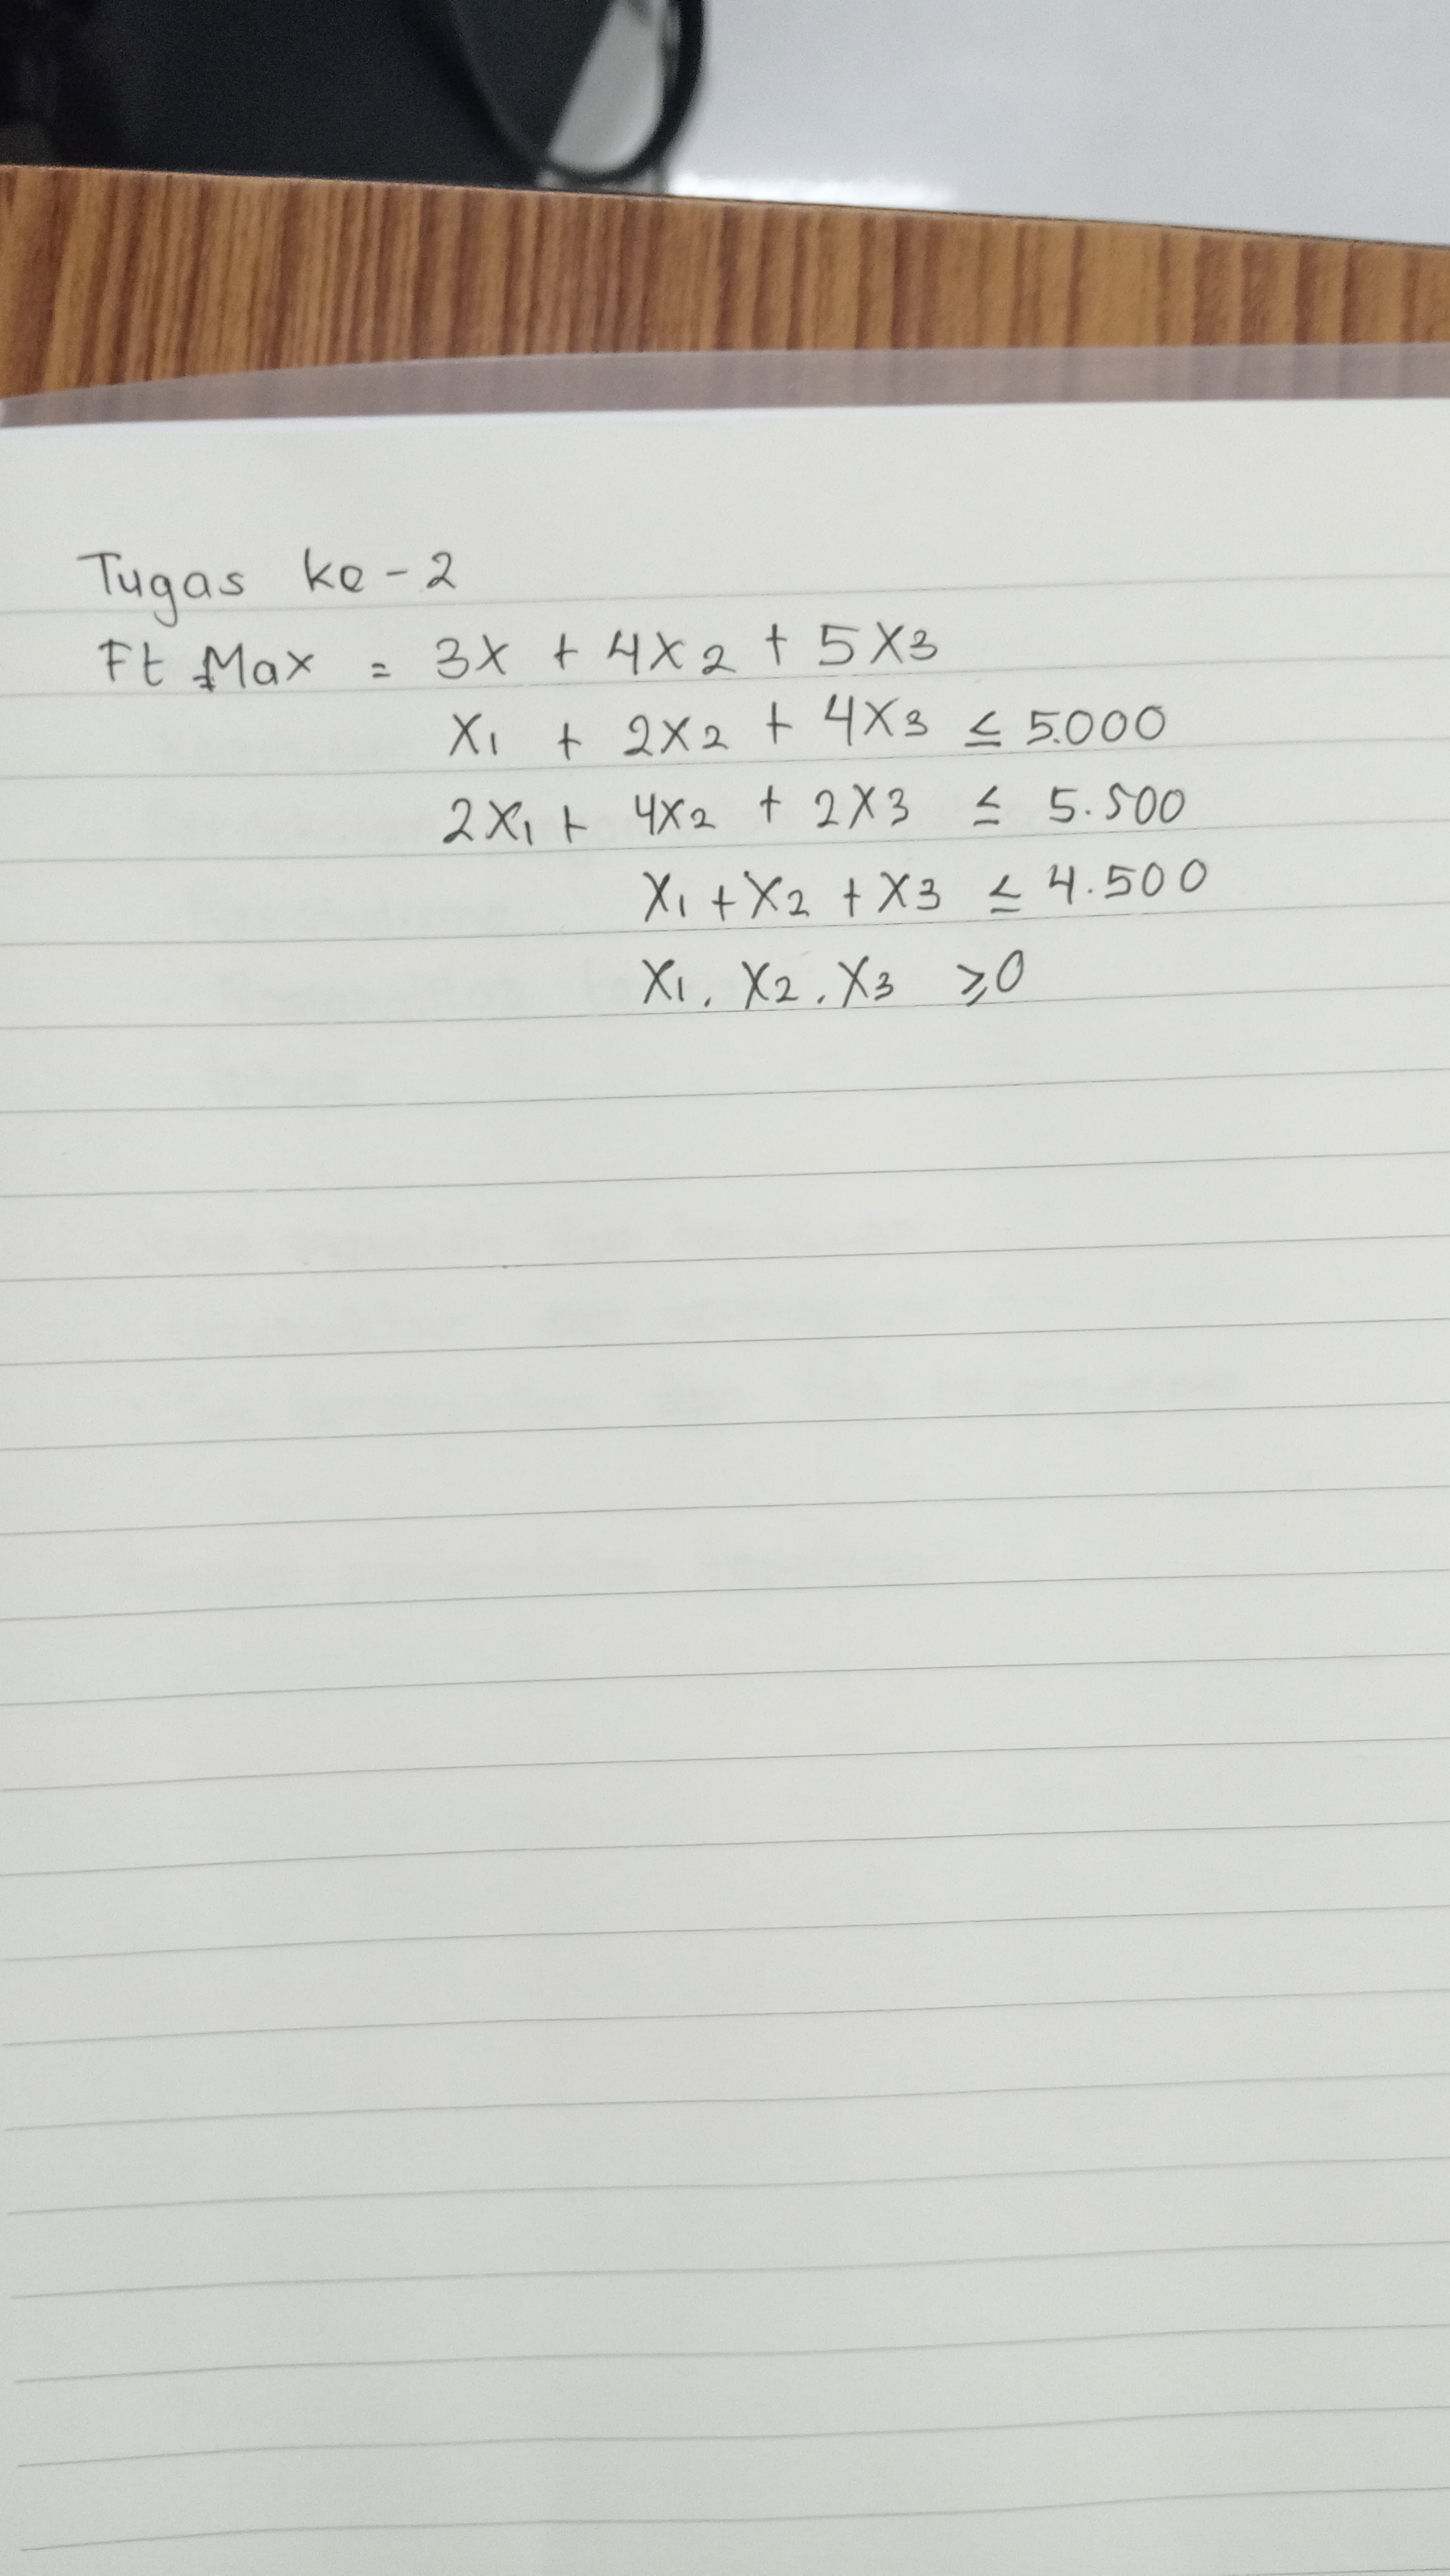 Tugas ke-2
Ft Max = 3X + 4X2 + 5X3
X1 + 2X2 + 4X3 ≤ 5.000
2X1 + 4X2 + 2X3 ≤ 5.500
X1 + X2 + X3 ≤ 4.500
X1, X2, X3 ≥ 0